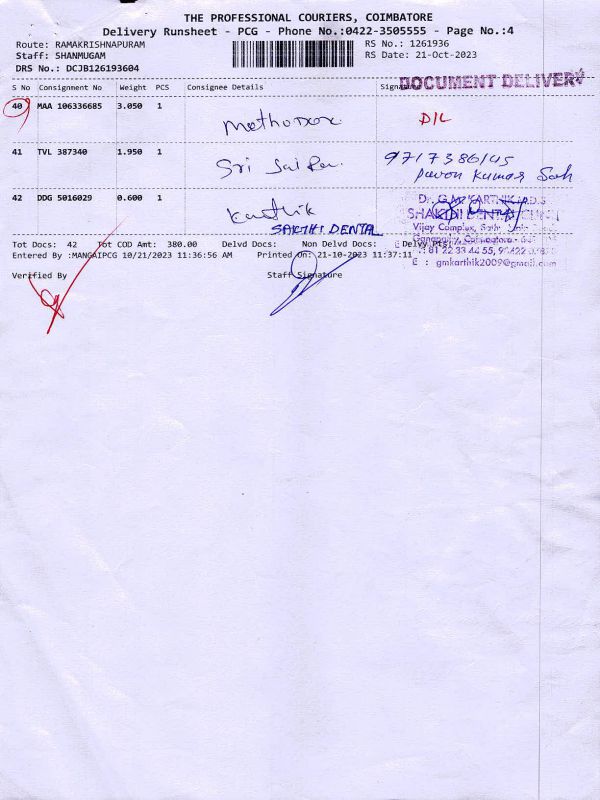 THE PROFESSIONAL COURIERS, COIMBATORE
Delivery Runsheet - PCG - Phone No.:0422-3505555 - Page No.:4
Route: RAMAKRISHNAPURAM RS No.: 1261936
Staff: SHANMUGAM RS Date: 21-Oct-2023
DRS No.: DCJB126193604
DOCUMENT DELIVERY
S No Consignment No Weight PCS Consignee Details
40 MAA 106336685 3.050 1 D/L
41 TVL 387340 1.950 1 Sri Sai
9717386145
Pavan Kumar Sah
42 DDG 5016029 0.600 1 Karthik
SAKTHI DENTAL
Vijay Complex,
Tot Docs: 42 Tot COD Amt: 380.00 Delvd Docs: Non Delvd Docs: Delvy Pts:
Entered By :MANGAIPCG 10/21/2023 11:36:56 AM Printed on: 21-10-2023 11:37:11
: 81 22 33 44 55,
E : gmkarthik2009@gmail.com
Verified By Staff Signature